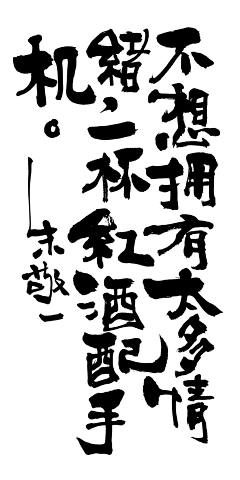 不想拥有太多情
緒，一杯紅酒配手
机。
——朱敬一